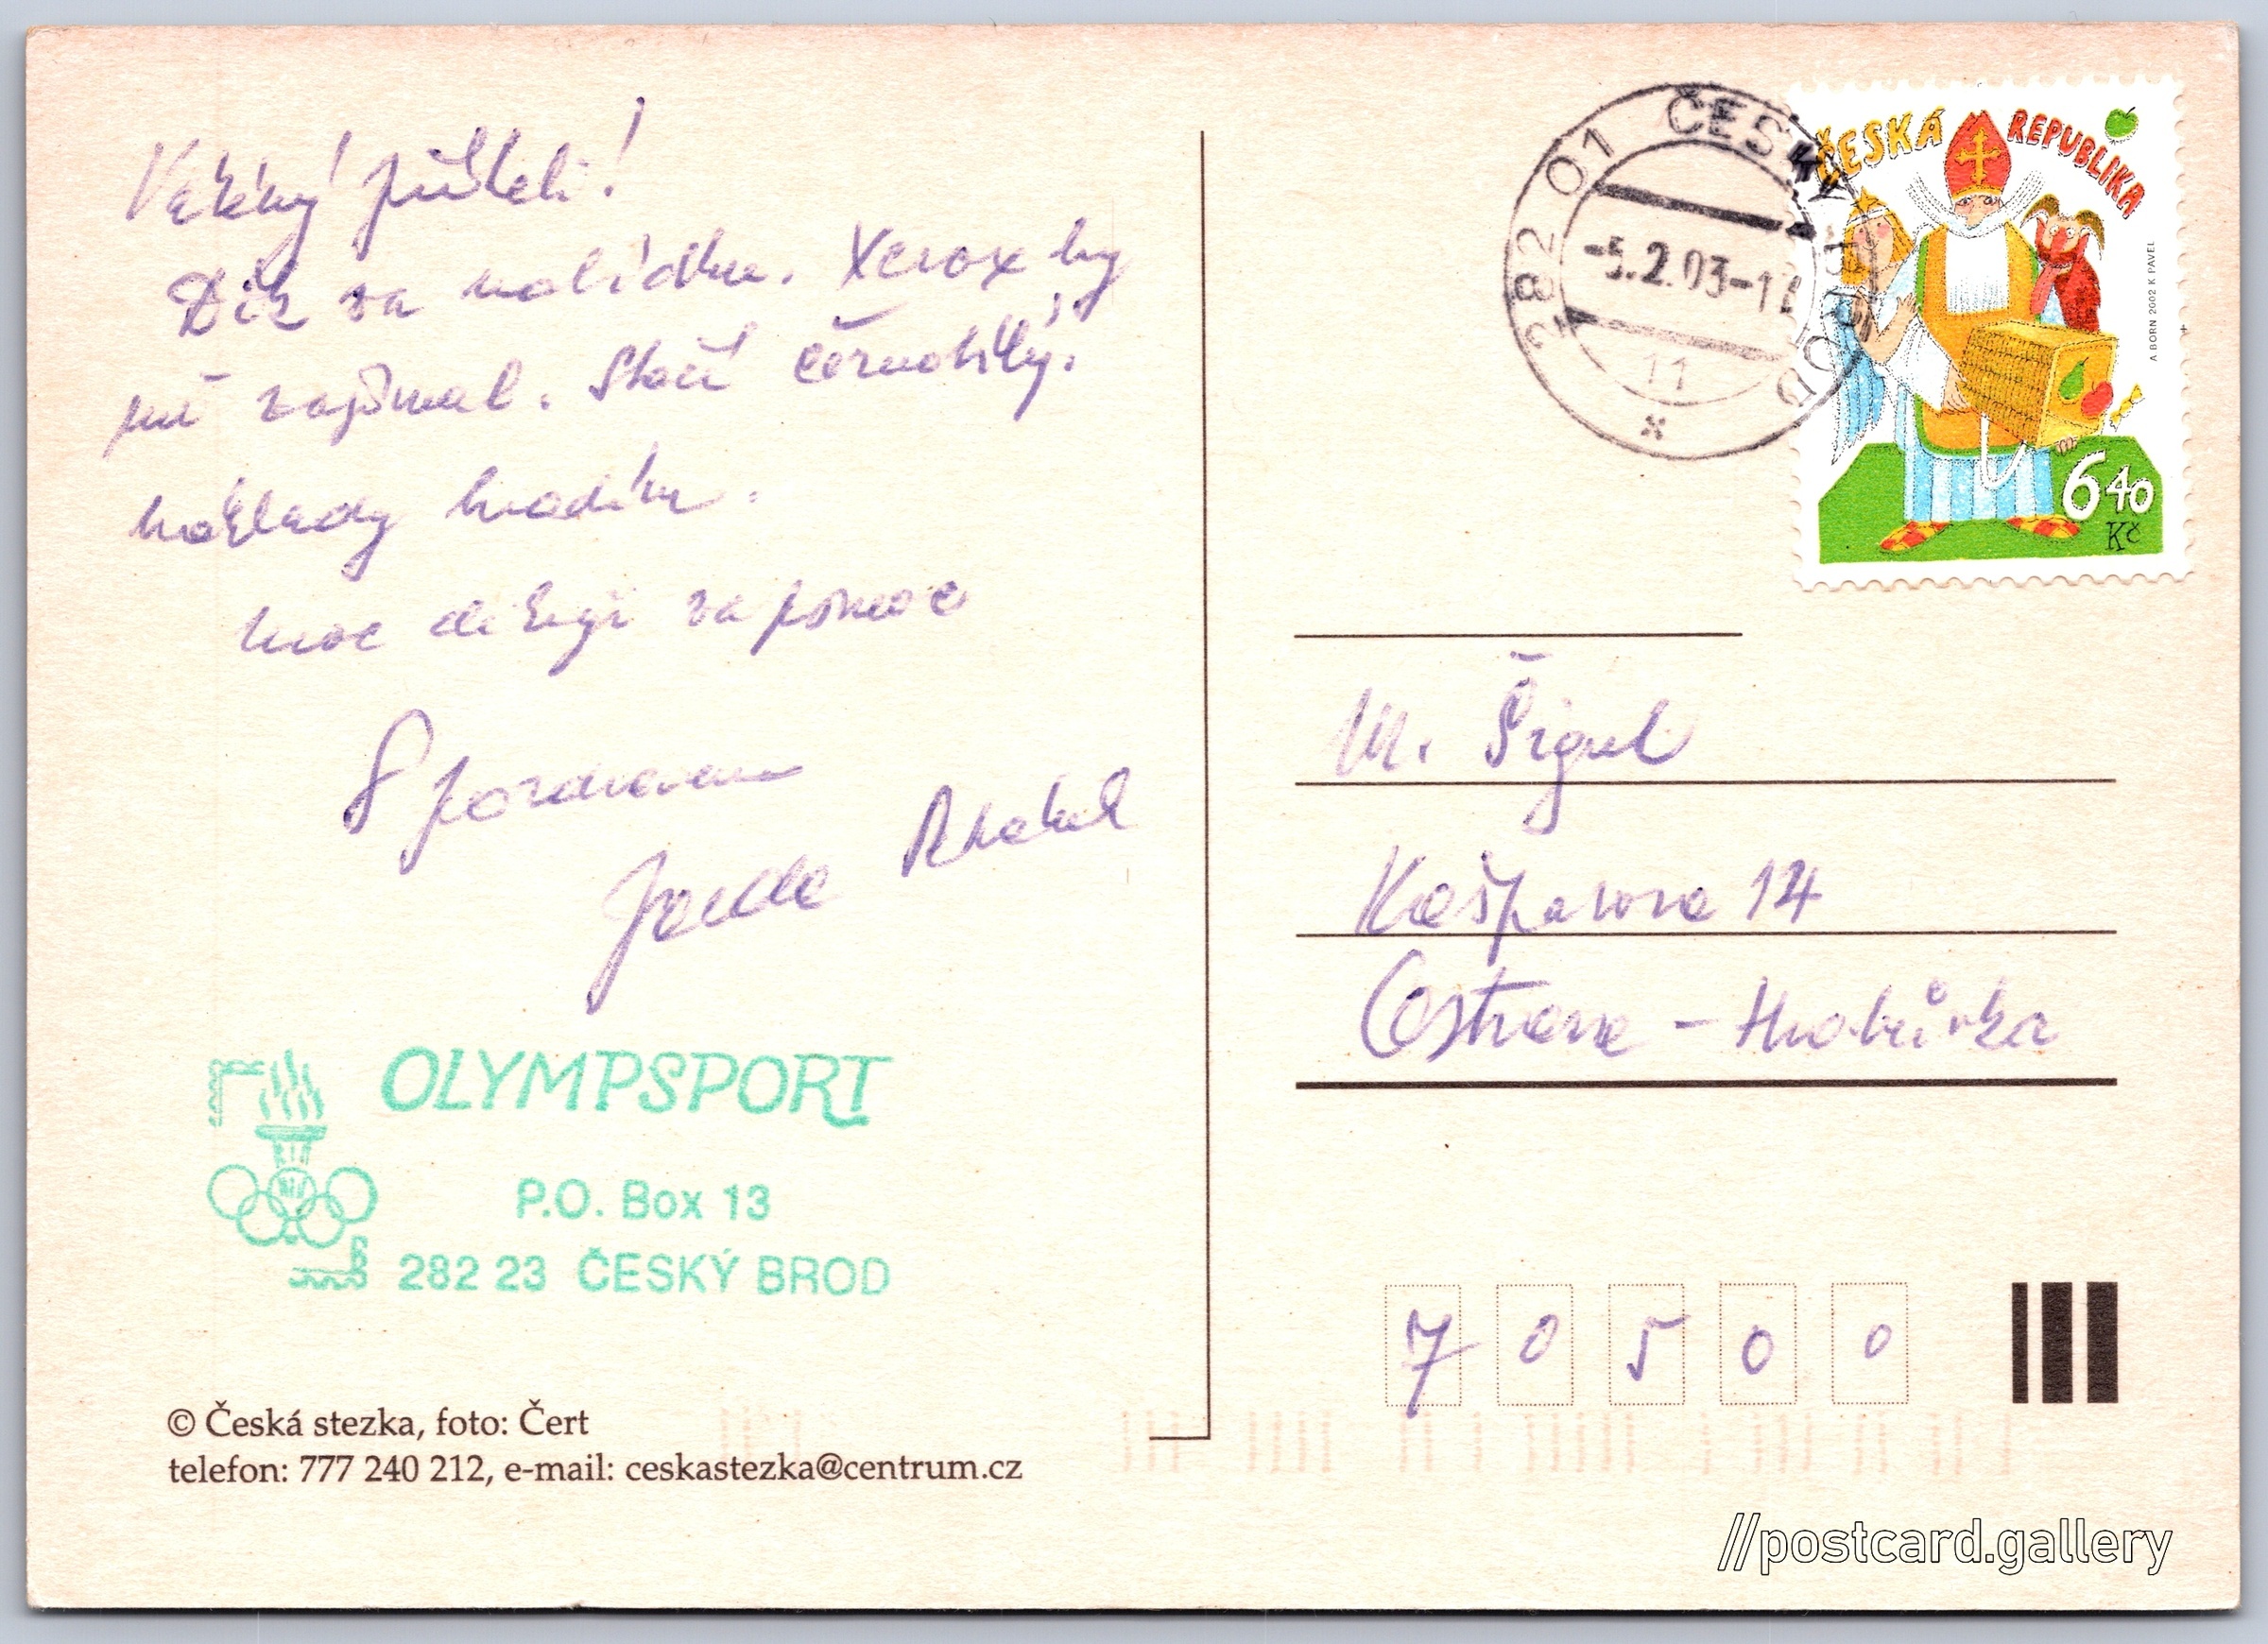 Vážený příteli!
Dík za nabídku. Xerox by
mě zajímal. Stačí černobílý.
náklady hradím.
moc děkuji za pomoc
S pozdravem
OLYMPSPORT
P.O. Box 13
282 23 ČESKÝ BROD
© Česká stezka, foto: Čert
telefon: 777 240 212, e-mail: ceskastezka@centrum.cz
282 01 ČESKÝ BROD
-5.2.03-1
11
ČESKÁ REPUBLIKA
A BORN 2002 K PAVEL
6 40
Kč
M. Šigut
Kašparova 14
Ostrava - Hrabůvka
7 0 5 0 0
//postcard.gallery